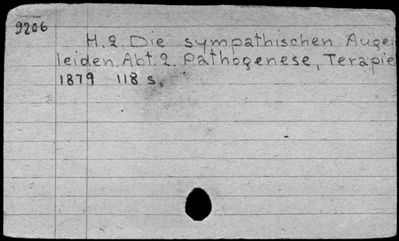 9206
H.2. Die sympathischen Augen
leiden. Abt. 2. Pathogenese, Terapie
1879 118 s.